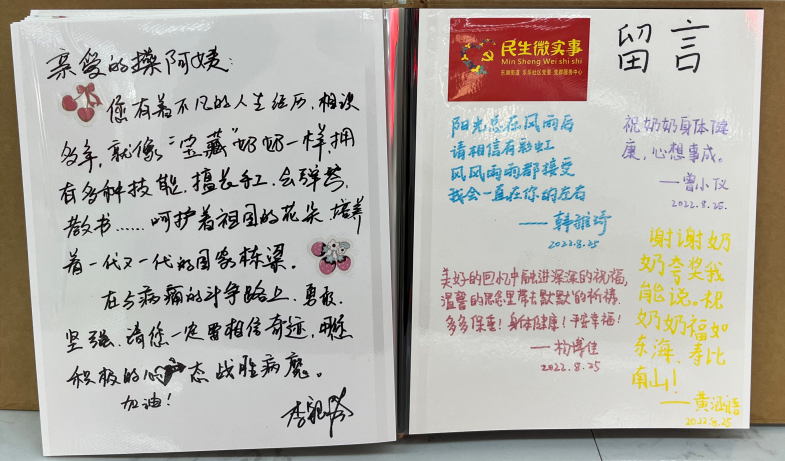 亲爱的操阿姨:
您有着不凡的人生经历,相识
多年,就像“宝藏”奶奶一样,拥
有多种技能,擅长手工,会弹琴,
教书……呵护着祖国的花朵,培养
着一代又一代的国家栋梁。
在与病痛的斗争路上,勇敢、
坚强,请您一定要相信奇迹,用您
积极的心态战胜病魔。
加油!
留言
民生微实事
Min Sheng Wei shi shi
阳光总在风雨后
请相信有彩虹
风风雨雨都接受
我会一直在你的左右
2022.8.25
祝奶奶身体健
康,心想事成。
——曾小仪
2022.8.25.
美好的回忆中融进深深的祝福,
温馨的思念里带去默默的祈祷
多多保重!身体健康!平安幸福!
——杨博佳
2022.8.25
谢谢奶
奶夸奖我
能说。祝
奶奶福如
东海,寿比
南山!
——黄涵语
2022.8.25